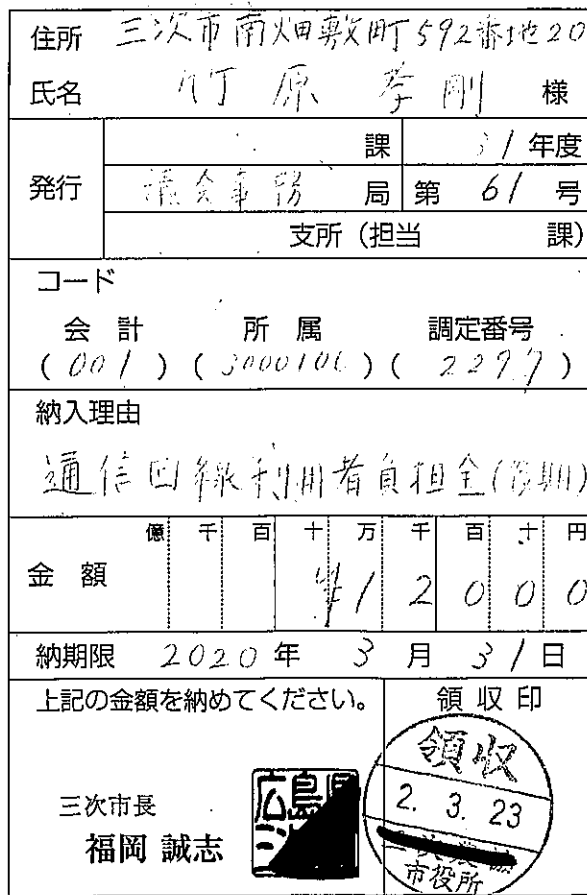 住所 三次市南畑敷町592番地20
氏名 竹原孝剛 様
発行
課 31年度
議会事務局 第 61 号
支所（担当 課）
コード
会計 所属 調定番号
(001) (3000100) (2297)
納入理由
通信回線利用者負担金(後期)
億 千 百 十 万 千 百 十 円
金額 ¥12000
納期限 2020年 3月 31日
上記の金額を納めてください。
領収印
三次市長
福岡 誠志
広島県
領収
2. 3. 23
市役所